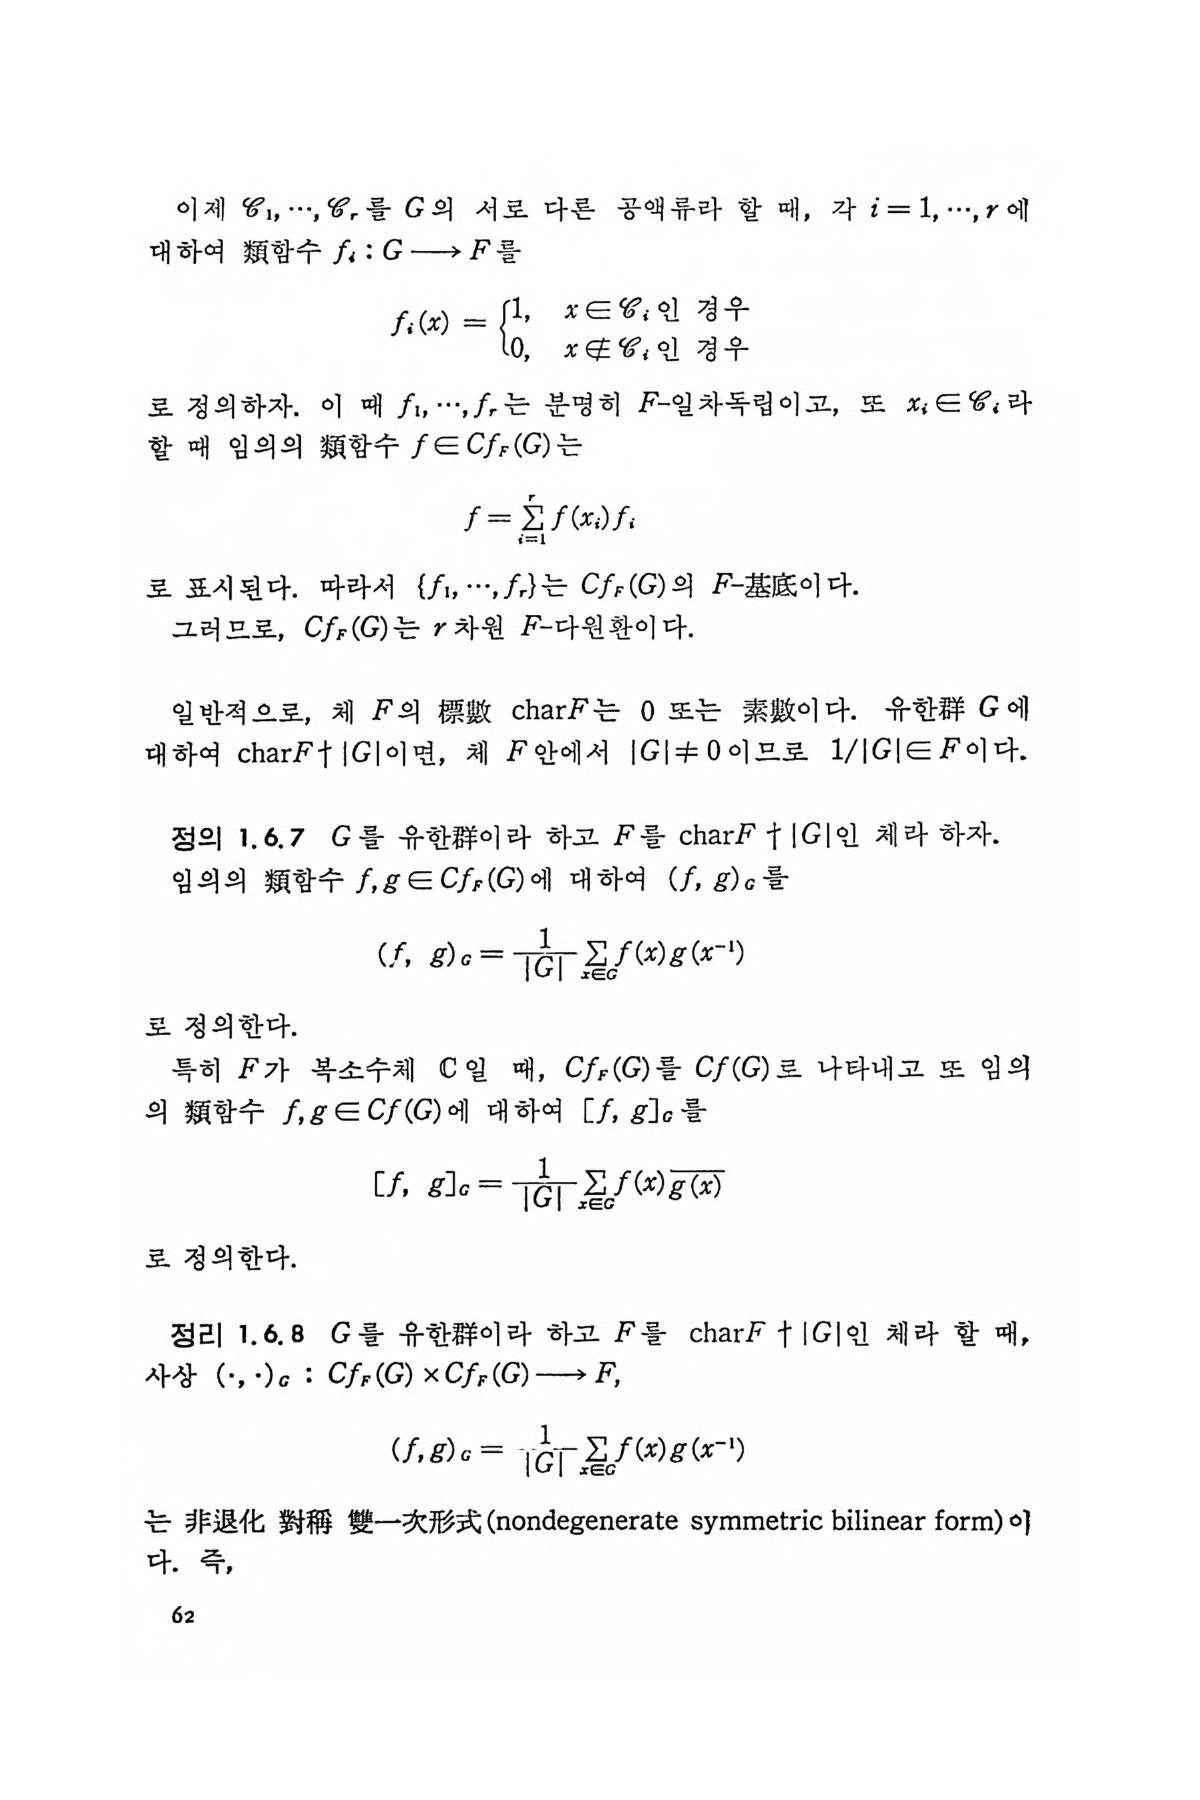 이제 𝒞₁, ⋯, 𝒞ᵣ를 G의 서로 다른 공액류라 할 때, 각 i = 1, ⋯, r에
대하여 類함수 fᵢ : G ⟶ F를
fᵢ(x) = {1, x∈𝒞ᵢ인 경우
0, x∉𝒞ᵢ인 경우
로 정의하자. 이 때 f₁, ⋯, fᵣ는 분명히 F-일차독립이고, 또 xᵢ∈𝒞ᵢ라
할 때 임의의 類함수 f∈Cf_F(G)는
f = ∑_{i=1}^{r} f(xᵢ)fᵢ
로 표시된다. 따라서 {f₁, ⋯, fᵣ}는 Cf_F(G)의 F-基底이다.
그러므로, Cf_F(G)는 r차원 F-다원환이다.
일반적으로, 체 F의 標數 charF는 0 또는 素數이다. 유한群 G에
대하여 charF† |G|이면, 체 F안에서 |G|≠0이므로 1/|G|∈F이다.
정의 1.6.7 G를 유한群이라 하고 F를 charF † |G|인 체라 하자.
임의의 類함수 f, g∈Cf_F(G)에 대하여 (f, g)_G를
(f, g)_G = 1/|G| ∑_{x∈G} f(x)g(x⁻¹)
로 정의한다.
특히 F가 복소수체 ℂ일 때, Cf_F(G)를 Cf(G)로 나타내고 또 임의
의 類함수 f, g∈Cf(G)에 대하여 [f, g]_G를
[f, g]_G = 1/|G| ∑_{x∈G} f(x)\overline{g(x)}
로 정의한다.
정리 1.6.8 G를 유한群이라 하고 F를 charF † |G|인 체라 할 때,
사상 (·, ·)_G : Cf_F(G) × Cf_F(G) ⟶ F,
(f, g)_G = 1/|G| ∑_{x∈G} f(x)g(x⁻¹)
는 非退化 對稱 雙一次形式(nondegenerate symmetric bilinear form)이
다. 즉,
62